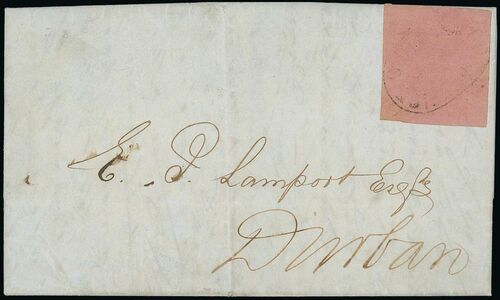 E. P. Lamport Esqre
Durban